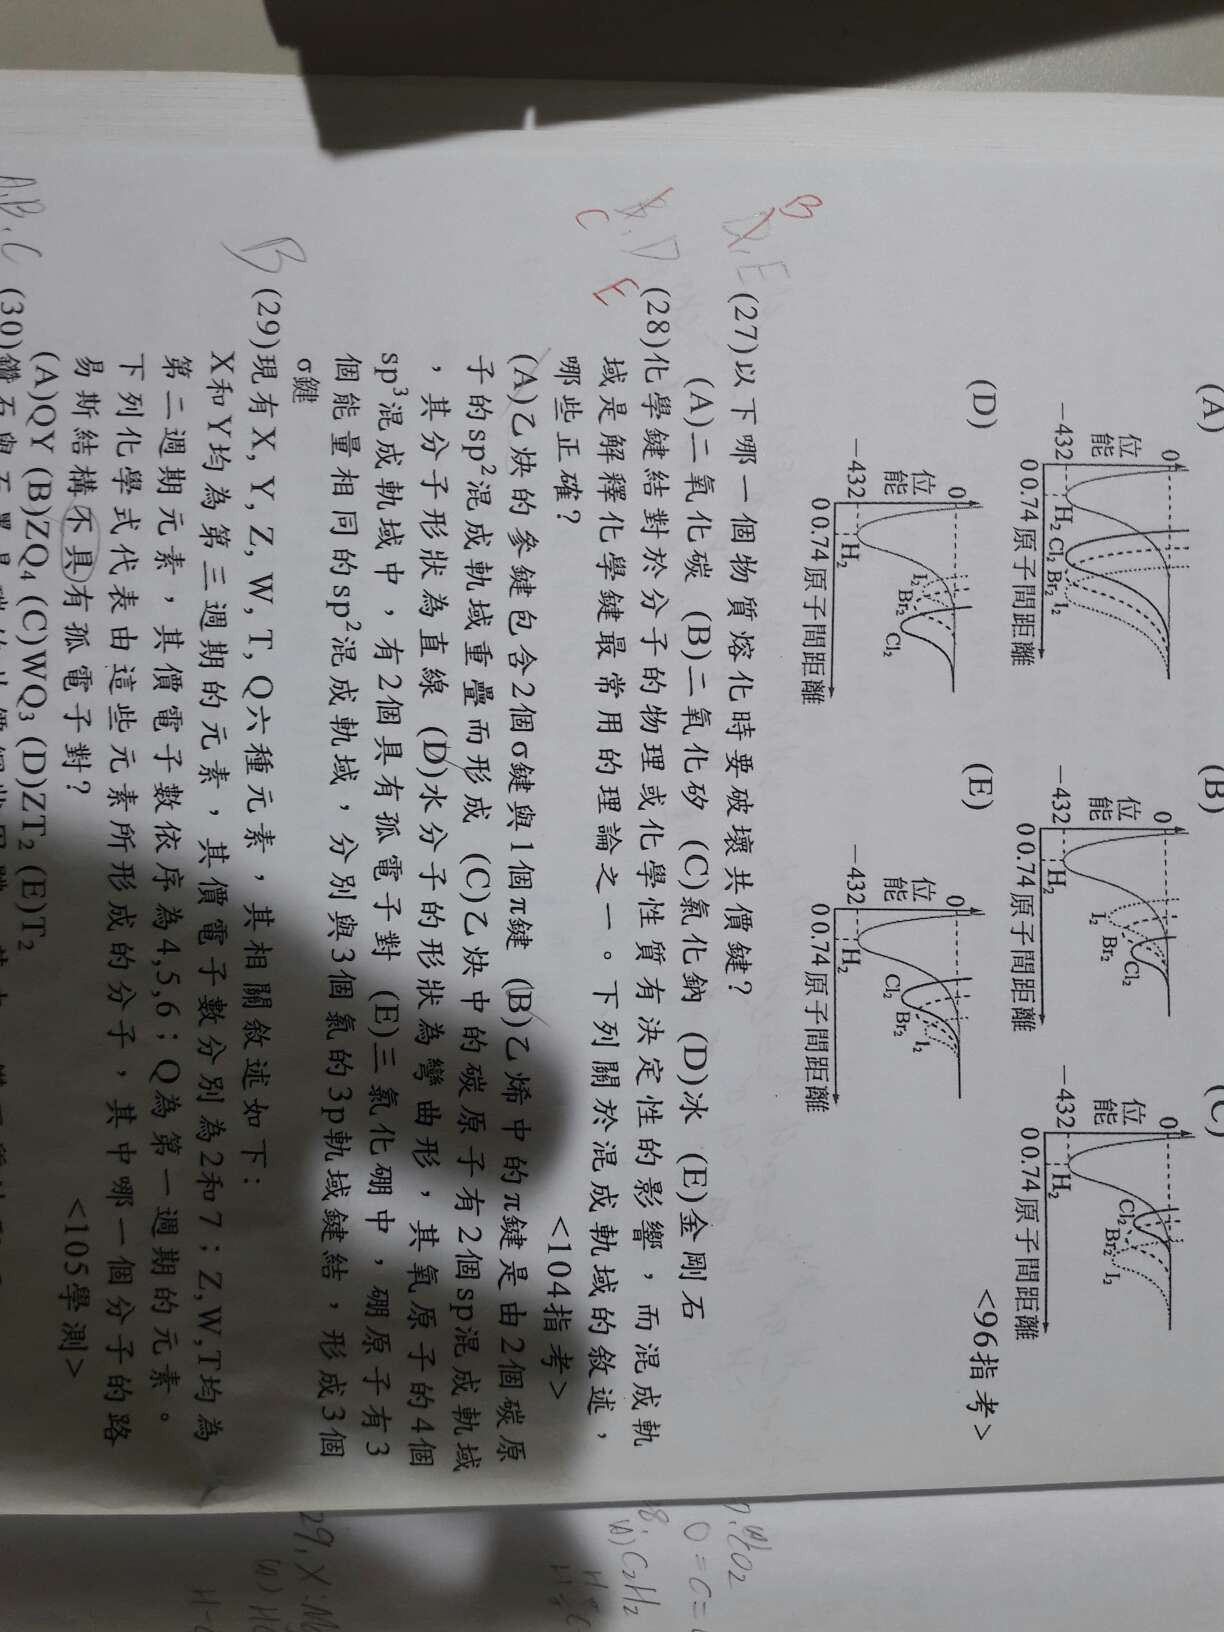 (A)
位能
0
−432
0 0.74 原子間距離
H₂ Cl₂ Br₂ I₂
(B)
位能
0
−432
0 0.74 原子間距離
H₂
I₂ Br₂ Cl₂
(C)
位能
0
−432
0 0.74 原子間距離
H₂
Cl₂ Br₂ I₂
(D)
位能
0
−432
0 0.74 原子間距離
H₂
I₂ Br₂ Cl₂
(E)
位能
0
−432
0 0.74 原子間距離
H₂
Cl₂ Br₂ I₂
<96指考>
B
(27)以下哪一個物質熔化時要破壞共價鍵？
(A)二氧化碳 (B)二氧化矽 (C)氯化鈉 (D)冰 (E)金剛石
C D E
(28)化學鍵結對於分子的物理或化學性質有決定性的影響，而混成軌
域是解釋化學鍵最常用的理論之一。下列關於混成軌域的敘述，
哪些正確？ <104指考>
(A)乙炔的參鍵包含2個σ鍵與1個π鍵 (B)乙烯中的π鍵是由2個碳原
子的sp²混成軌域重疊而形成 (C)乙炔中的碳原子有2個sp混成軌域
，其分子形狀為直線 (D)水分子的形狀為彎曲形，其氧原子的4個
sp³混成軌域中，有2個具有孤電子對 (E)三氯化硼中，硼原子有3
個能量相同的sp²混成軌域，分別與3個氯的3p軌域鍵結，形成3個
σ鍵
B
(29)現有X, Y, Z, W, T, Q六種元素，其相關敘述如下：
X和Y均為第三週期的元素，其價電子數分別為2和7；Z,W,T均為
第二週期元素，其價電子數依序為4,5,6；Q為第一週期的元素。
下列化學式代表由這些元素所形成的分子，其中哪一個分子的路
易斯結構不具有孤電子對？ <105學測>
(A)QY (B)ZQ₄ (C)WQ₃ (D)ZT₂ (E)T₂
A,B,C
(30)鑽石與石墨